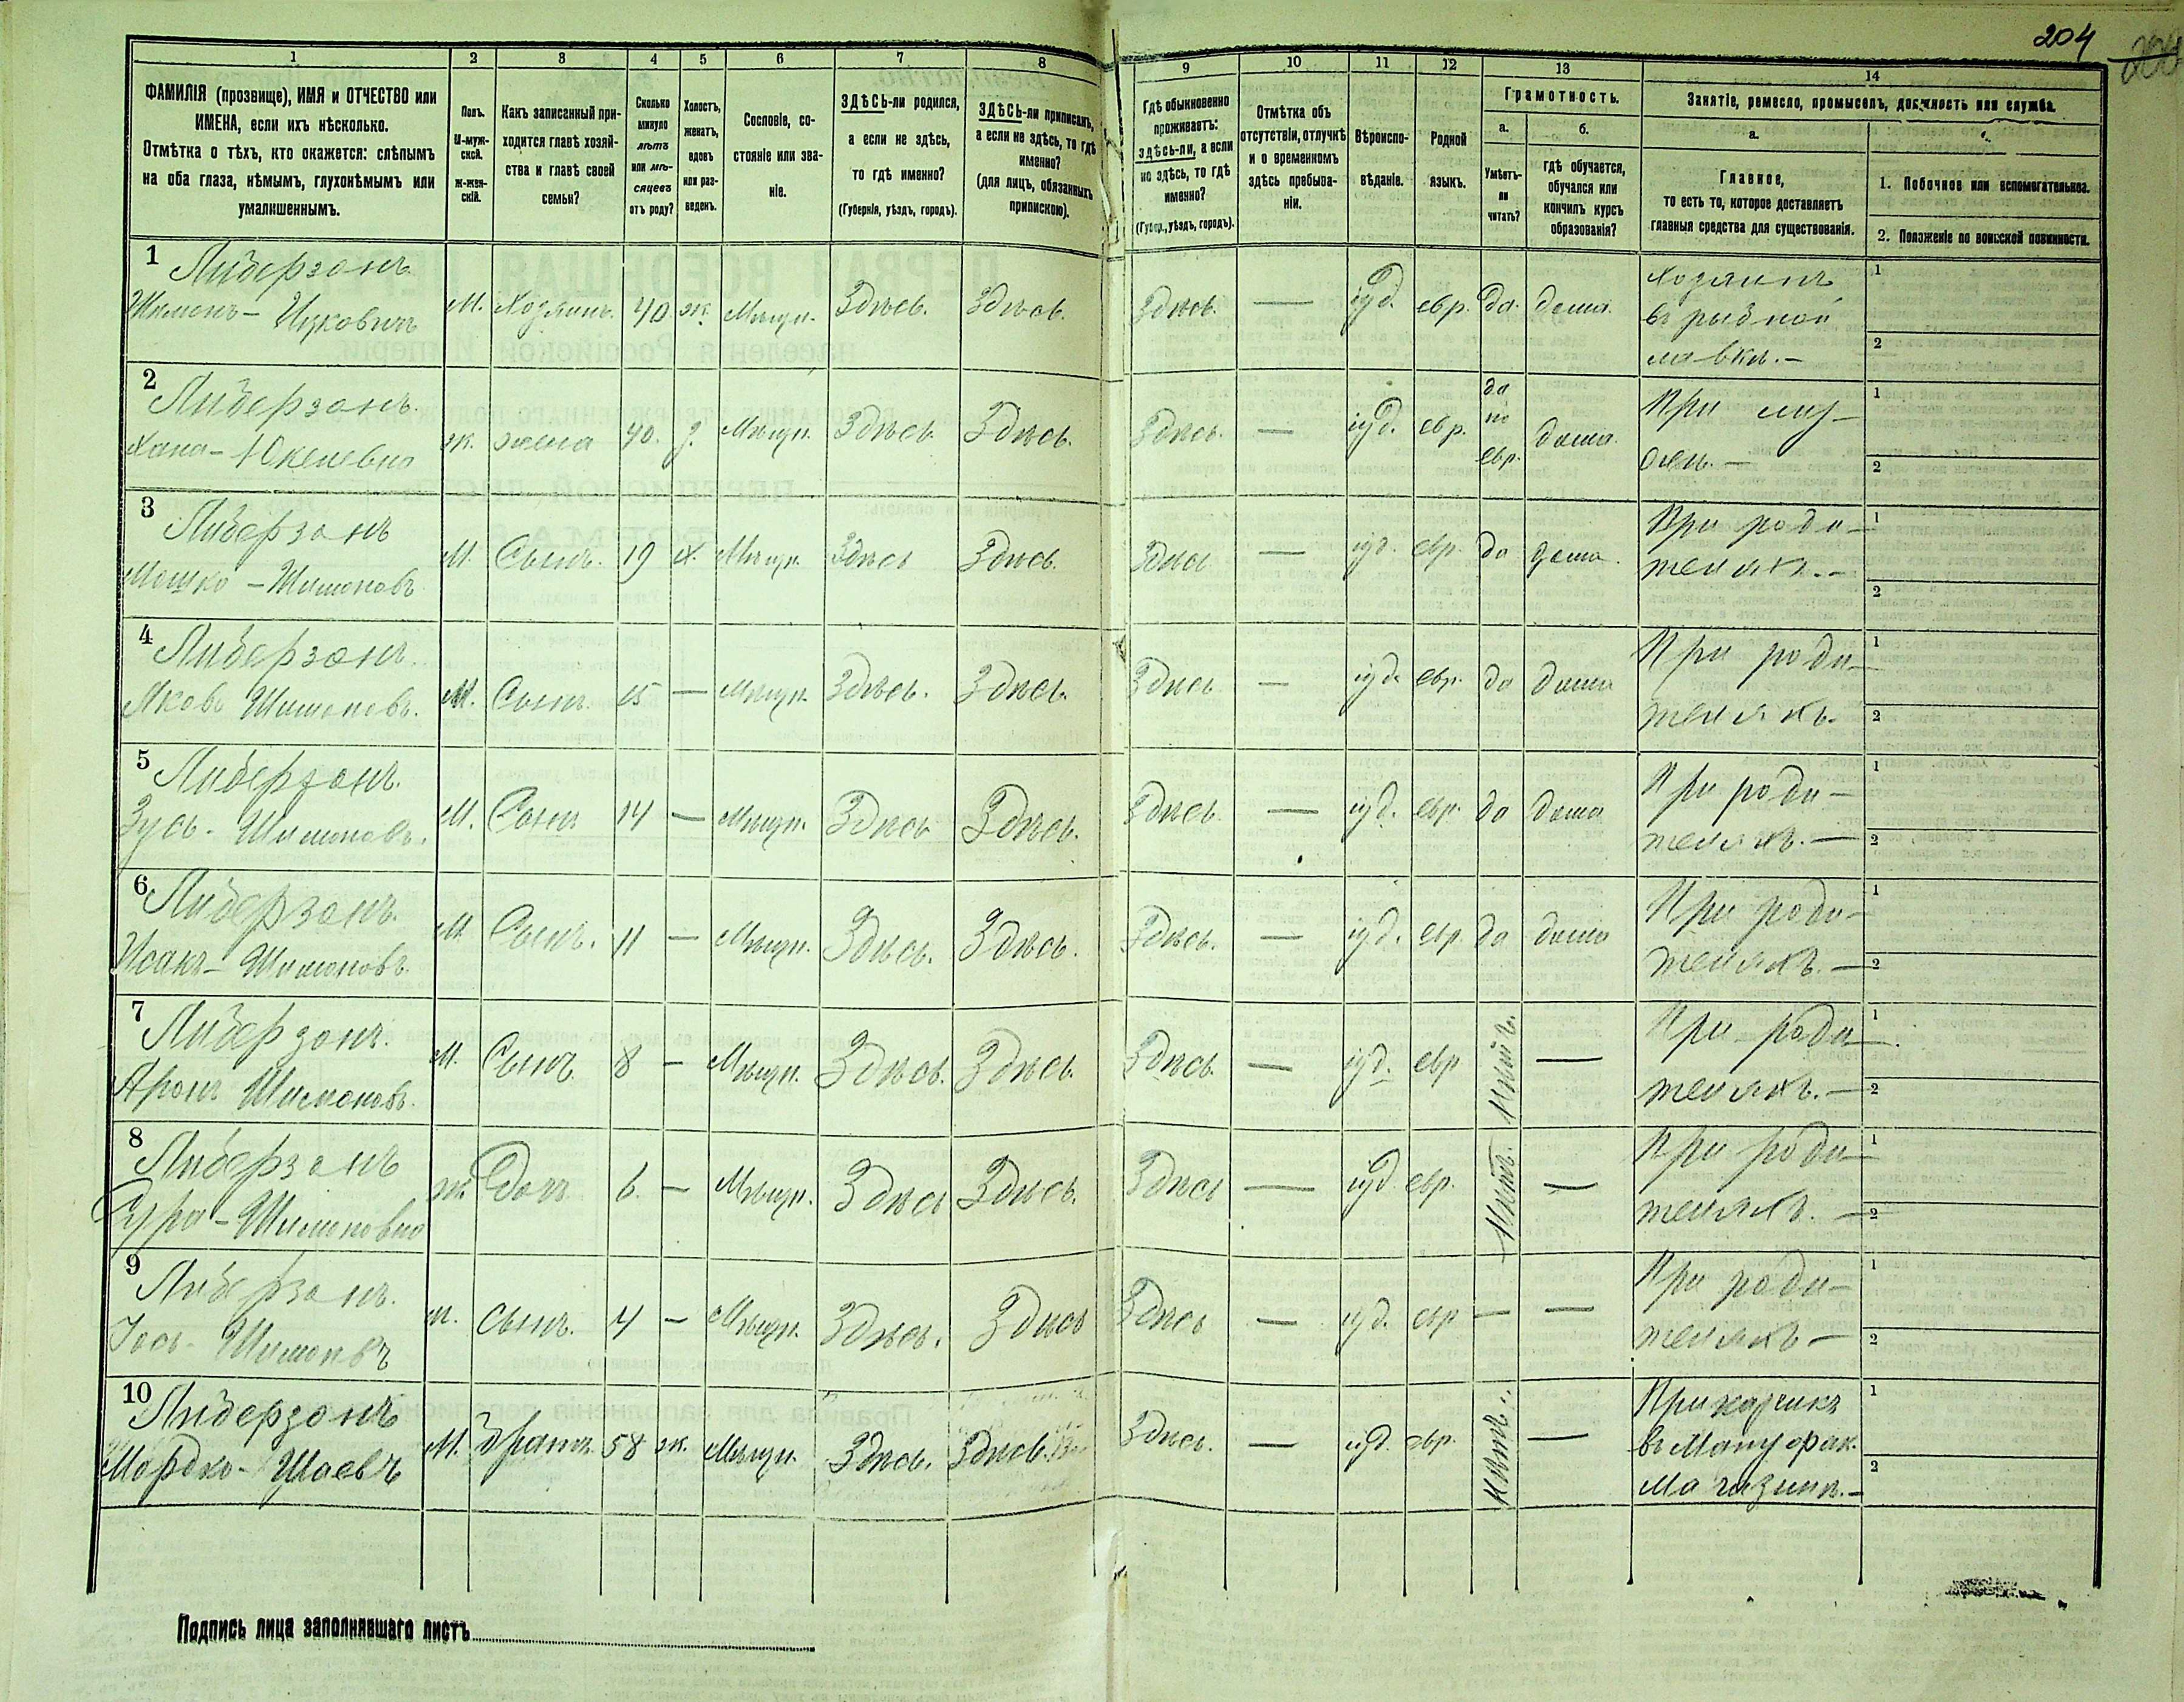 204
1 2 3 4 5 6 7 8 9 10 11 12 13 14
ФАМИЛІЯ (прозвище), ИМЯ и ОТЧЕСТВО или
ИМЕНА, если ихъ нѣсколько.
Отмѣтка о тѣхъ, кто окажется: слѣпымъ
на оба глаза, нѣмымъ, глухонѣмымъ или
умалишеннымъ.
Полъ.
М-муж-
ской.
Ж-жен-
скій.
Какъ записанный при-
ходится главѣ хозяй-
ства и главѣ своей
семьи?
Сколько
минуло
лѣтъ
или мѣ-
сяцевъ
отъ роду?
Холостъ,
женатъ,
вдовъ
или раз-
веденъ.
Сословіе, со-
стояніе или зва-
ніе.
ЗДѢСЬ-ли родился,
а если не здѣсь,
то гдѣ именно?
(Губернія, уѣздъ, городъ).
ЗДѢСЬ-ли приписанъ,
а если не здѣсь, то гдѣ
именно?
(для лицъ, обязанныхъ
припискою).
Гдѣ обыкновенно
проживаетъ:
здѣсь-ли, а если
не здѣсь, то гдѣ
именно?
(Губер., уѣздъ, городъ).
Отмѣтка объ
отсутствіи, отлучкѣ
и о временномъ
здѣсь пребыва-
ніи.
Вѣроиспо-
вѣданіе.
Родной
языкъ.
Грамотность.
а.
Умѣетъ-
ли
читать?
б.
гдѣ обучается,
обучался или
кончилъ курсъ
образованія?
Занятіе, ремесло, промыселъ, должность или служба.
а.
Главное,
то есть то, которое доставляетъ
главныя средства для существованія.
1. Побочное или вспомогательное.
2. Положеніе по воинской повинности.
1 Либерзонъ
М. Хозяинъ. 40 ж. Мѣщан. Здѣсь. Здѣсь. Здѣсь. — іуд. евр. да. дома. Хозяинъ
въ рыбной
лавкѣ.—
1
2
2 Либерзонъ.
ж. жена 40. з. Мѣщан. Здѣсь. Здѣсь. Здѣсь. — іуд. евр. да
по
евр. дома. При муж-
1
2
3 Либерзонъ
Мошко — Шимоновъ
М. Сынъ. 19 х. Мѣщан. Здѣсь Здѣсь. Здѣсь — іуд. евр. да дома. При роди-
теляхъ.—
1
2
4 Либерзонъ.
Яковъ Шимоновъ.
М. Сынъ. 15 — Мѣщан. Здѣсь. Здѣсь. Здѣсь — іуд. евр. да дома При роди-
теляхъ.
1
2
5 Либерзонъ.
Зусь - Шимоновъ.
М. Сынъ 14 — Мѣщан. Здѣсь Здѣсь. Здѣсь. — іуд. евр. да дома При роди-
теляхъ.—
1
2
6 Либерзонъ.
Исакъ - Шимоновъ.
М. Сынъ. 11 — Мѣщан. Здѣсь. Здѣсь. Здѣсь. — іуд. евр. да дома При роди-
теляхъ.—
1
2
7 Либерзонъ.
Аронъ Шимоновъ.
М. Сынъ. 8 — Мѣщан. Здѣсь. Здѣсь. Здѣсь. — іуд. евр нѣтъ. — При роди-
теляхъ.—
1
2
8 Либерзонъ
Сура - Шимоновна
ж. Дочь 6. — Мѣщан. Здѣсь Здѣсь. Здѣсь — іуд евр. нѣтъ. — При роди-
теляхъ.—
1
2
9 Либерзонъ.
м. сынъ. 4 — Мѣщан. Здѣсь. Здѣсь Здѣсь — іуд. евр — — При роди-
теляхъ—
1
2
10 Либерзонъ
Мордко - Шаевъ
М. братъ 58 ж. Мѣщан. Здѣсь. Здѣсь. Здѣсь. — іуд. евр. нѣтъ. — Прикащикъ
въ Мануфак.
Магазинѣ.—
1
2
Подпись лица заполнявшаго листъ